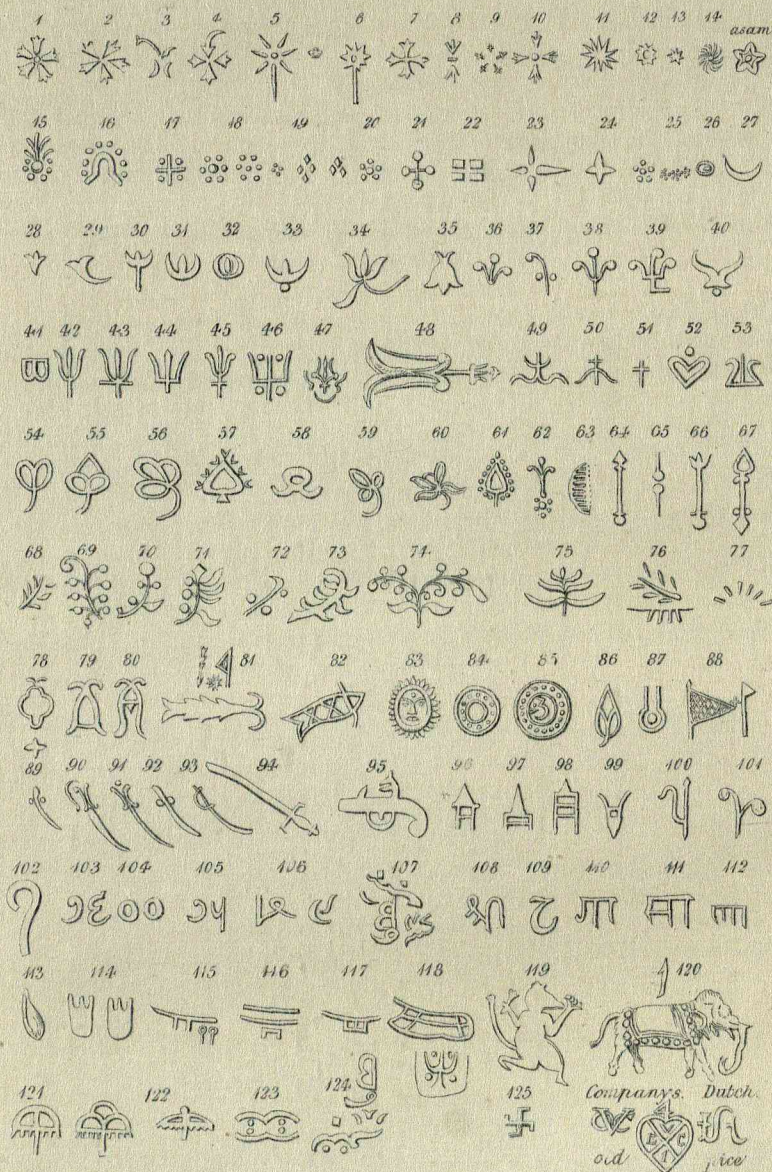 1 2 3 4 5 6 7 8 9 10 11 12 13 14 asam
15 16 17 18 19 20 21 22 23 24 25 26 27
28 29 30 31 32 33 34 35 36 37 38 39 40
41 42 43 44 45 46 47 48 49 50 51 52 53
54 55 56 57 58 59 60 61 62 63 64 65 66 67
68 69 70 71 72 73 74 75 76 77
78 79 80 81 82 83 84 85 86 87 88
89 90 91 92 93 94 95 96 97 98 99 100 101
102 103 104 105 106 107 108 109 110 111 112
113 114 115 116 117 118 119 120
121 122 123 124 125 Companys. Dutch.
old pice